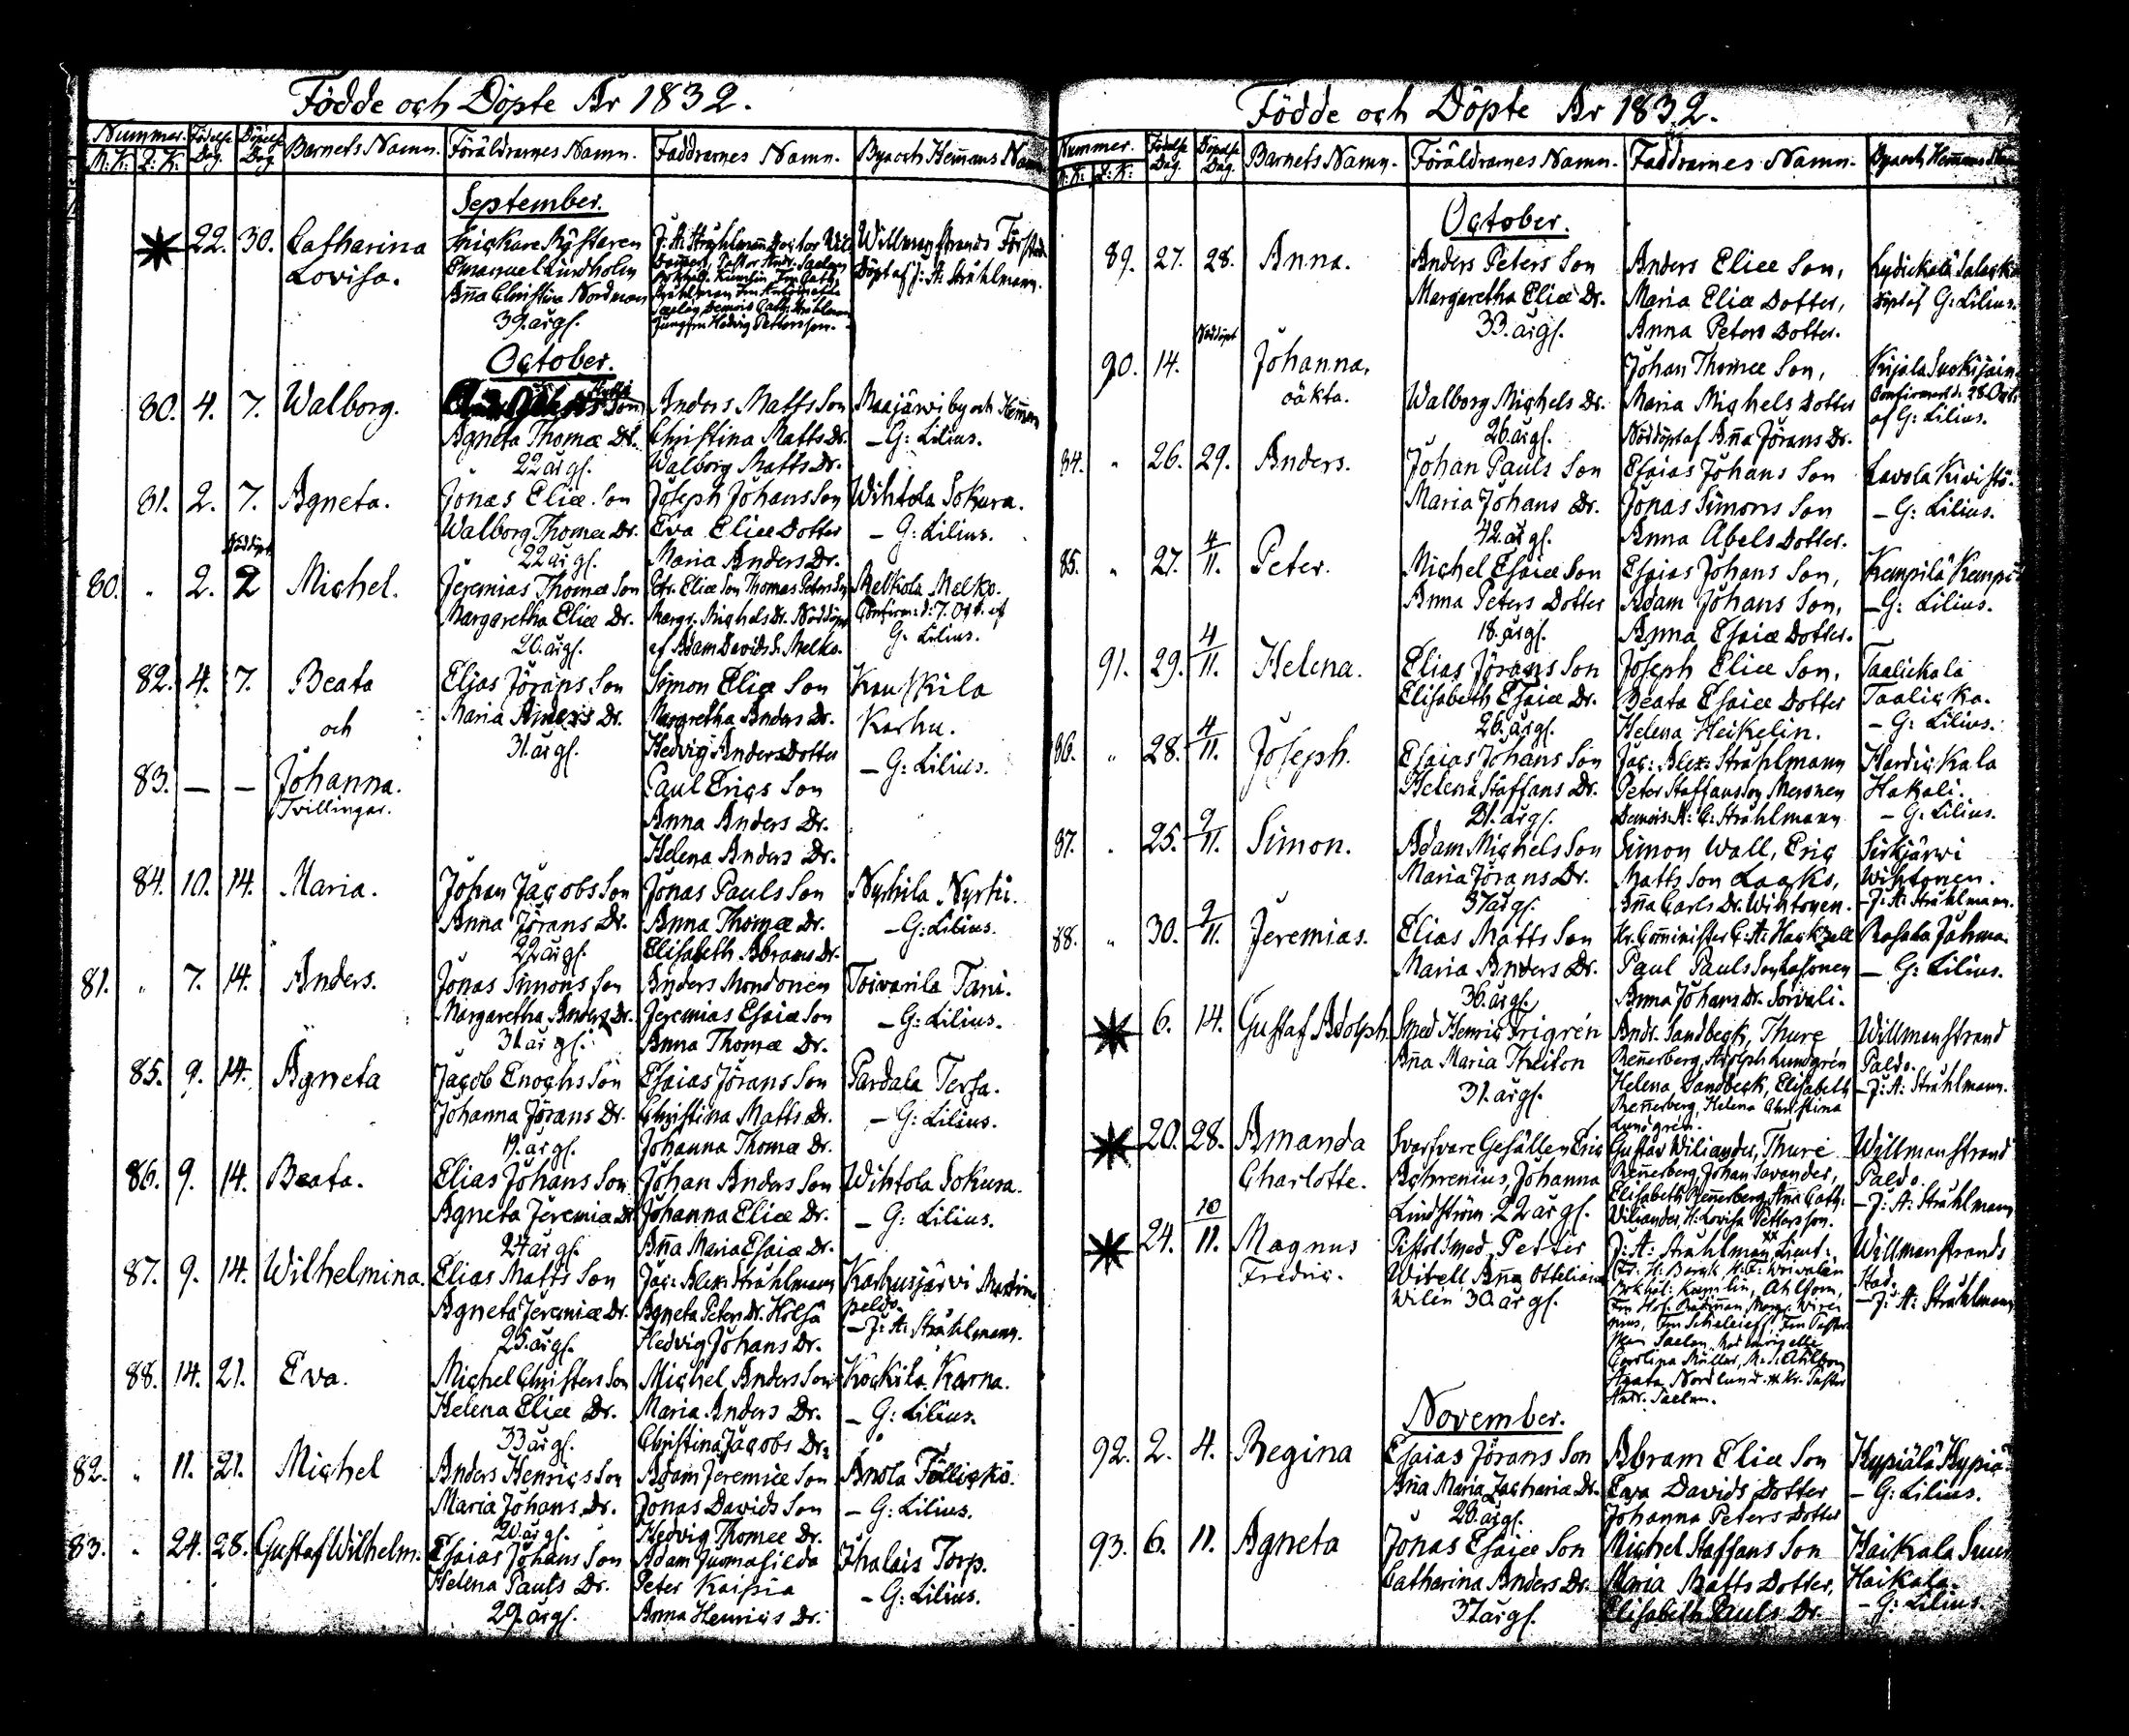 Födde och Döpte År 1832.
Nummer. Födelse Dag. Döpelse Dag. Barnets Namn. Föräldrarnes Namn. Faddrarnes Namn. Bya och Hemans Namn
M. K. Q. K.
September.
22. 30. Catharina Lovisa.
Emanuel Lindholm
Aña Christina Nordman
39. år gl.
Döpt af J: A: Stråhlmann.
Jungfru Hedvig Pettersson.
October.
80. 4. 7. Walborg.
Agneta Thomæ Dr.
22 år gl.
Anders Matts Son
Christina Matts Dr.
Walborg Matts Dr.
Maajärvi by och Heman
– G: Lilius.
81. 2. 7. Agneta.
Jonas Eliæ Son
Walborg Thomæ Dr.
22 år gl.
Joseph Johans Son
Eva Eliæ Dotter
Maria Anders Dr.
Wihtola Sokura.
– G: Lilius.
80. " 2. 2 Michel.
Nöddöpt
Jeremias Thomæ Son
Margaretha Eliæ Dr.
20. år gl.
Petr. Eliæ Son Thomas Peters Son
Margr. Michels Dr. Nöddöpt
af Adam Davids S. Melko.
Melkola Melko.
Confirm: d: 7. Oct. af
G: Lilius.
82. 4. 7. Beata
och
83. – – Johanna.
Tvillingar.
Elias Jörans Son
Maria Anders Dr.
31. år gl.
Simon Eliæ Son
Margretha Anders Dr.
Hedvig Anders Dotter
Paul Erics Son
Anna Anders Dr.
Helena Anders Dr.
Kauskila
Karhu.
– G: Lilius.
84. 10. 14. Maria.
Johan Jacobs Son
Anna Jörans Dr.
22 år gl.
Jonas Pauls Son
Anna Thomæ Dr.
Elisabeth Abrams Dr.
Nyrhila Nyrhi.
– G: Lilius.
81. " 7. 14. Anders.
Jonas Simons Son
Margaretha Anders Dr.
31 år gl.
Anders Mondonen
Jeremias Esaiæ Son
Anna Thomæ Dr.
Toivarila Tani.
– G: Lilius.
85. 9. 14. Agneta
Jacob Enochs Son
Johanna Jörans Dr.
19. år gl.
Esaias Jörans Son
Christina Matts Dr.
Johanna Thomæ Dr.
Pardala Tersa.
– G: Lilius.
86. 9. 14. Beata.
Elias Johans Son
Agneta Jeremiæ Dr
24 år gl.
Johan Anders Son
Johanna Eliæ Dr.
Aña Maria Esaiæ Dr.
Wihtola Sokura.
– G: Lilius.
87. 9. 14. Wilhelmina.
Elias Matts Son
Agneta Jeremiæ Dr.
25. år gl.
Jac: Alex: Stråhlmann
Agneta Peters Dr. Holsa
Hedvig Johans Dr.
Karhusjärvi
– J: A: Stråhlmann.
88. 14. 21. Eva.
Michel Christers Son
Helena Eliæ Dr.
33 år gl.
Michel Anders Son
Maria Anders Dr.
Christina Jacobs Dr.
Kockila Karna.
– G: Lilius.
82. " 11. 21. Michel
Anders Henrics Son
Maria Johans Dr.
20. år gl.
Adam Jeremiæ Son
Jonas Davids Son
Hedvig Thomæ Dr.
Anola Tällickö.
– G: Lilius.
83. " 24. 28. Gustaf Wilhelm.
Esaias Johans Son
Helena Pauls Dr.
29. år gl.
Adam Juomasilda
Peter Kaisia
Anna Henrics Dr.
Ihalais Torp.
– G: Lilius.
Födde och Döpte År 1832.
Nummer. Födelse Dag. Döpelse Dag. Barnets Namn. Föräldrarnes Namn. Faddrarnes Namn. Bya och Hemans Namn
M. K: Q: K:
October.
89. 27. 28. Anna.
Anders Peters Son
Margaretha Eliæ Dr.
33. år gl.
Anders Eliæ Son,
Maria Eliæ Dotter,
Anna Peters Dotter.
Döpt af G: Lilius.
90. 14. Nöddöpt Johanna,
oäkta.
Walborg Michels Dr.
26. år gl.
Johan Thomæ Son,
Maria Michels Dotter
Nöddöpt af Aña Jörans Dr.
Confirmerad d: 28 Oct.
af G: Lilius.
84. " 26. 29. Anders.
Johan Pauls Son
Maria Johans Dr.
42. år gl.
Esaias Johans Son
Jonas Simons Son
Anna Abels Dotter.
Lavola Kivistö.
– G: Lilius.
85. " 27. 4/11. Peter.
Michel Esaiæ Son
Anna Peters Dotter
18. år gl.
Esaias Johans Son,
Adam Johans Son,
Anna Esaiæ Dotter.
Kempilä
– G: Lilius.
91. 29. 4/11. Helena.
Elias Jörans Son
Elisabeth Esaiæ Dr.
26. år gl.
Joseph Eliæ Son,
Beata Esaiæ Dotter
Helena Heikelin.
Taalickala
Taalicka.
– G: Lilius.
86. " 28. 4/11. Joseph.
Esaias Johans Son
Helena Staffans Dr.
21. år gl.
Jac: Alex: Stråhlmann
Peter Staffansson Meronen
Demois: A: C: Stråhlmann
Hardickala
Hakali.
– G: Lilius.
87. " 25. 9/11. Simon.
Adam Michels Son
Maria Jörans Dr.
37 år gl.
Simon Wall, Eric
Matts Son Laaks,
Aña Carls Dr. Wihtonen.
Sirkjärvi
Wihtonen.
– J: A: Stråhlmann.
88. " 30. 9/11. Jeremias.
Elias Matts Son
Maria Anders Dr.
36. år gl.
Paul Pauls Son Lasonen
Anna Johans Dr. Sorvali.
– G: Lilius.
6. 14. Gustaf Adolph.
Smed Henric Frigrén
Aña Maria Theilen
31. år gl.
Andr. Sandbeck, Thure
Reñerberg, Adolph Lundgrén
Helena Sandbeck, Elisabeth
Reñerberg, Helena Christina
Lundgrén.
Willmanstrand
Paldo.
– J: A: Stråhlmann.
20. 28. Amanda
Charlotte.
Svarfvare Gesällen Eric
Achrenius, Johanna
Lindström 22 år gl.
Gustav Wiliander, Thure
Reñerberg, Johan Savander,
Elisabeth Reñerberg, Aña Cath:
Wiliander, H: Lovisa Pettersson.
Willmanstrand
Paldo.
– J: A: Stråhlmann
24. 10/11. Magnus
Fredric.
Pistolsmed Petter
Witell Aña Otteliana
Wilén 30. år gl.
J: A: Stråhlman, Lieut:
Carolina Müller,
Agata Nordlund. Kr. Pastor
Andr. Saelan.
Willmanstrands
Stad.
– J: A: Stråhlmann
November.
92. 2. 4. Regina
Esaias Jörans Son
Aña Maria Zacharia Dr.
20. år gl.
Abram Eliæ Son
Eva Davids Dotter
Johanna Peters Dotter
Kypiälä Kypiä.
– G: Lilius.
93. 6. 11. Agneta
Jonas Esaiæ Son
Catharina Anders Dr.
37 år gl.
Michel Staffans Son
Maria Matts Dotter,
Elisabeth Pauls Dr.
Haikala
Haikala.
– G: Lilius.